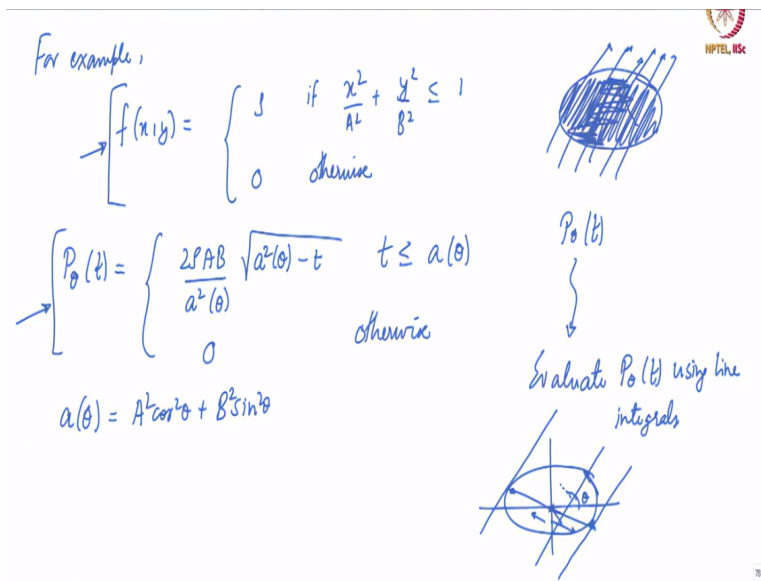 For example,
f(x,y) = { ρ if x²/A² + y²/B² ≤ 1
0 otherwise
P_θ(t) = { 2ρAB/a²(θ) √(a²(θ) - t) t ≤ a(θ)
0 otherwise
a(θ) = A²cos²θ + B²sin²θ
NPTEL, IISc
P_θ(t)
Evaluate P_θ(t) using line
integrals
θ
78